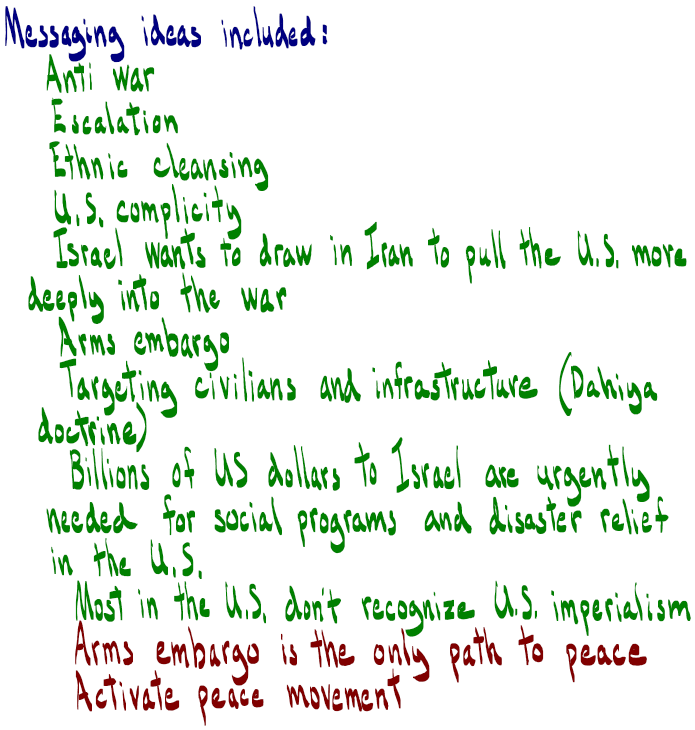 Messaging ideas included:
Anti war
Escalation
Ethnic cleansing
U.S. complicity
Israel wants to draw in Iran to pull the U.S. more
deeply into the war
Arms embargo
Targeting civilians and infrastructure (Dahiya
doctrine)
Billions of US dollars to Israel are urgently
needed for social programs and disaster relief
in the U.S.
Most in the U.S. don't recognize U.S. imperialism
Arms embargo is the only path to peace
Activate peace movement